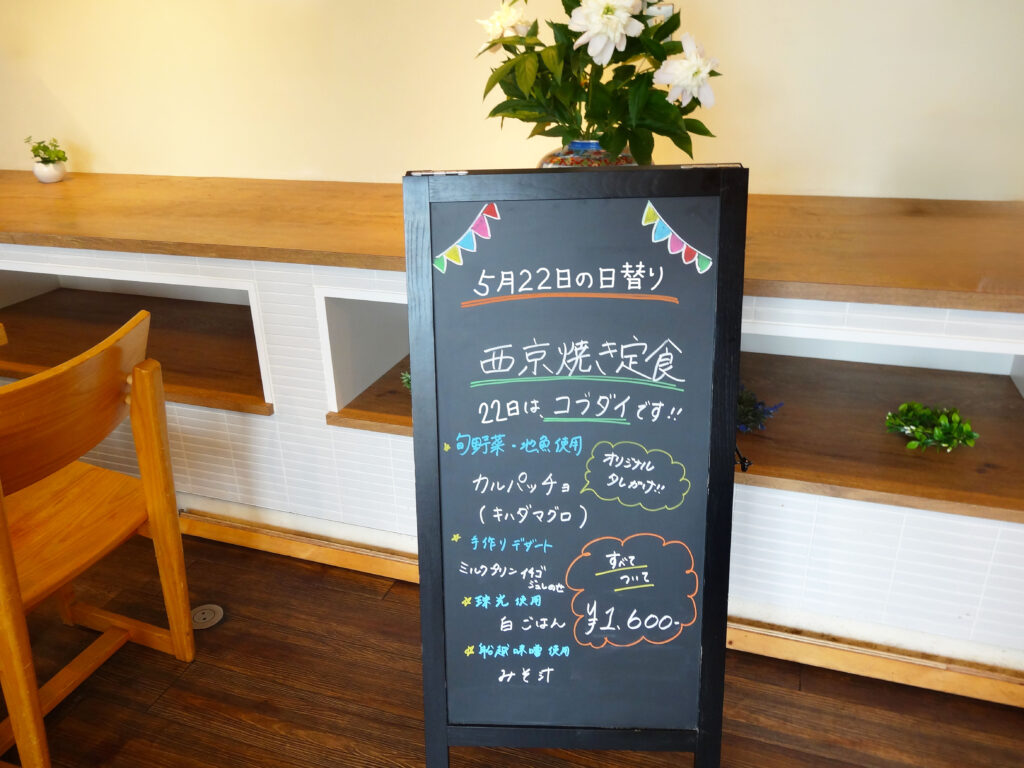 5月22日の日替り
西京焼き定食
22日は、コブダイです!!
旬野菜・地魚使用
カルパッチョ
(キハダマグロ)
オリジナル
タレがけ!!
手作りデザート
ミルクプリン イチゴ
ジュレのせ
すべて
ついて
¥1,600-
使用
白ごはん
船越味噌使用
みそ汁